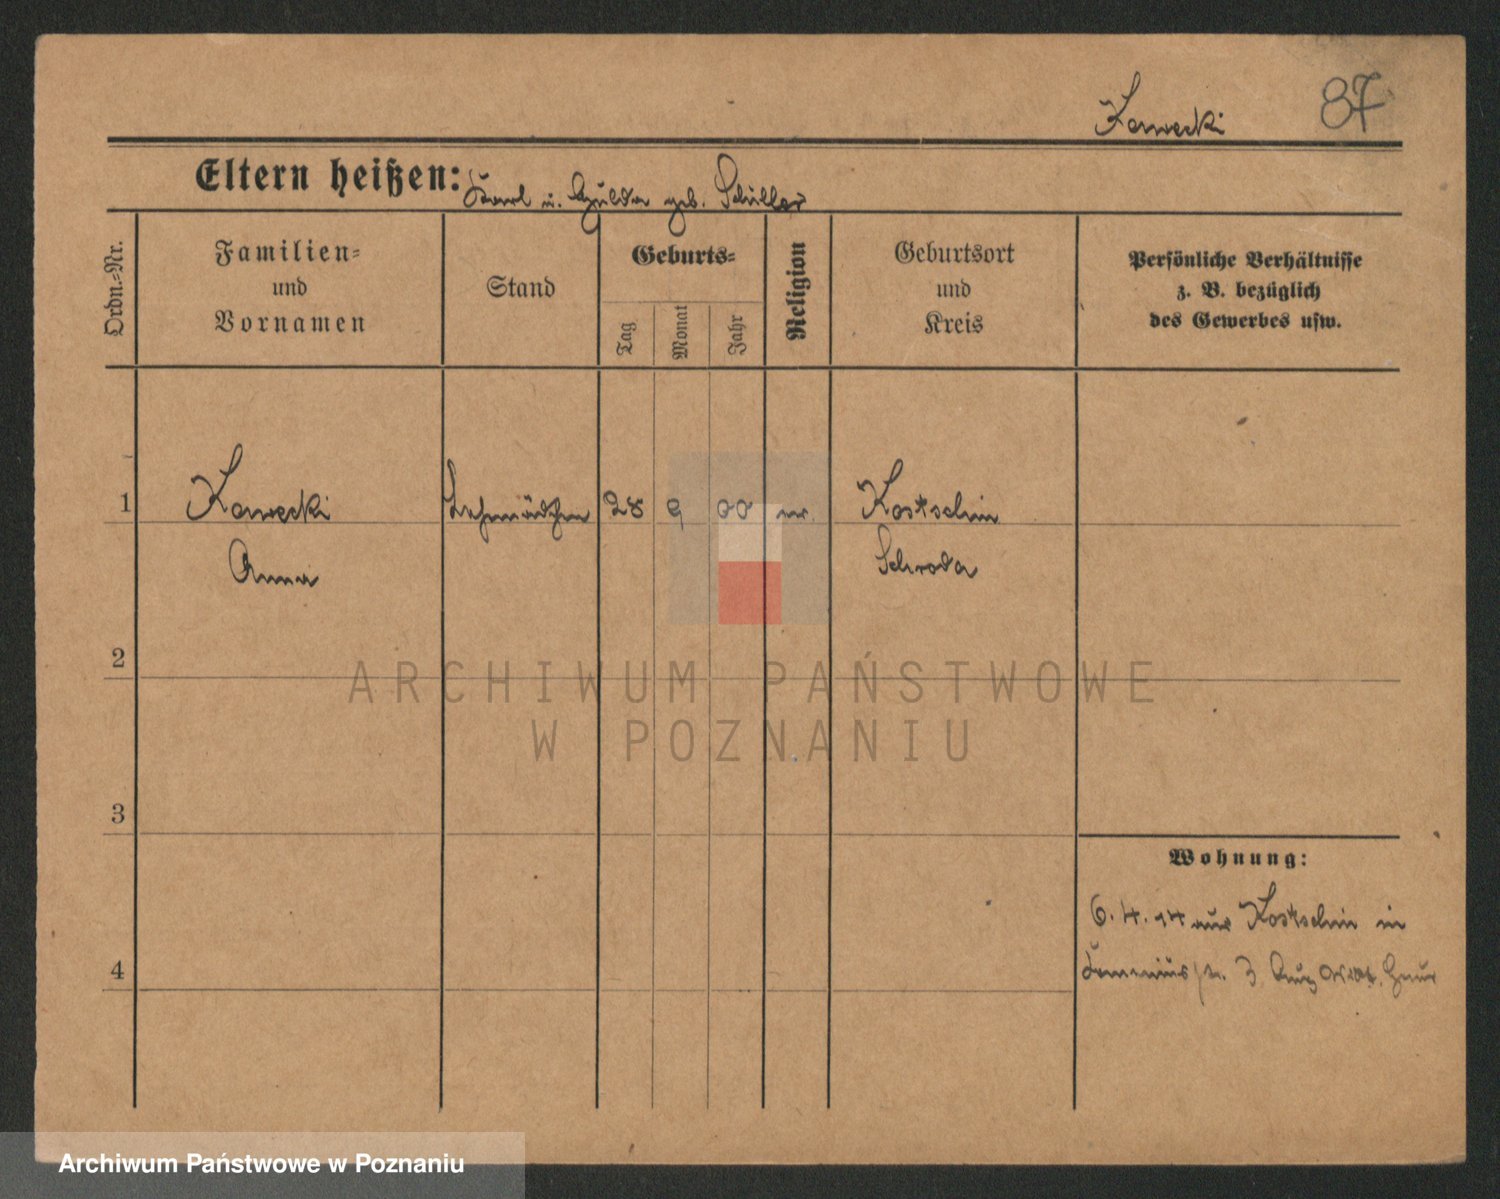 Kawecki
87
Eltern heißen: Karl u. Hulda geb. Schiller
Ordn.-Nr.
Familien-
und
Vornamen
Stand
Geburts-
Tag
Monat
Jahr
Religion
Geburtsort
und
Kreis
Persönliche Verhältnisse
z. B. bezüglich
des Gewerbes usw.
1
Kawecki
Lehrmädchen
28
9
00
ev.
Kostschin
Anna
Schroda
2
ARCHIWUM PAŃSTWOWE
W POZNANIU
3
Wohnung:
6. 4. 14 aus Kostschin in
4
3
Archiwum Państwowe w Poznaniu